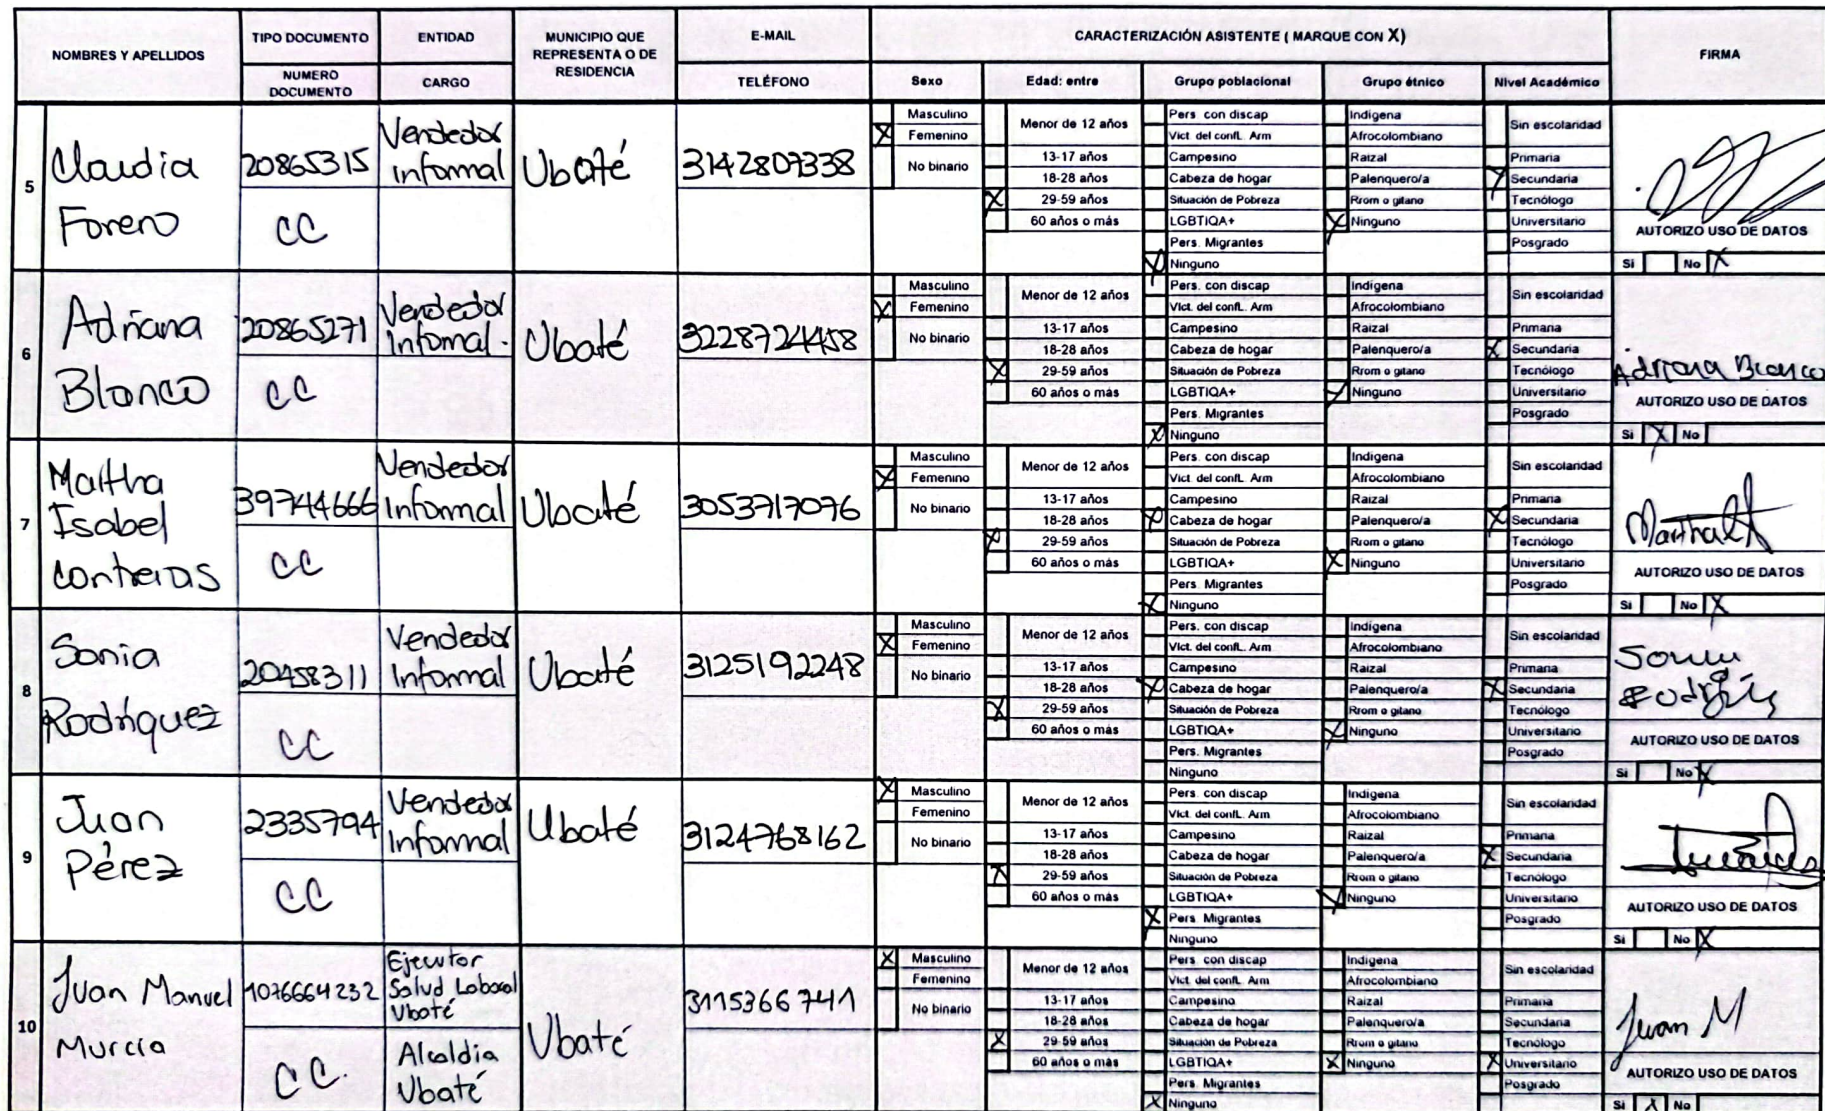 NOMBRES Y APELLIDOS
TIPO DOCUMENTO
NUMERO DOCUMENTO
ENTIDAD
CARGO
MUNICIPIO QUE REPRESENTA O DE RESIDENCIA
E-MAIL
TELÉFONO
CARACTERIZACIÓN ASISTENTE ( MARQUE CON X)
Sexo
Edad: entre
Grupo poblacional
Grupo étnico
Nivel Académico
FIRMA
5
Claudia
Forero
20865315
CC
Vendedor
Informal
Ubaté
3142807338
Masculino
X Femenino
No binario
Menor de 12 años
13-17 años
18-28 años
X 29-59 años
60 años o más
Pers. con discap
Vict. del confl. Arm
Campesino
Cabeza de hogar
Situación de Pobreza
LGBTIQA+
Pers. Migrantes
X Ninguno
Indígena
Afrocolombiano
Raizal
Palenquero/a
Rrom o gitano
X Ninguno
Sin escolaridad
Primaria
X Secundaria
Tecnólogo
Universitario
Posgrado
AUTORIZO USO DE DATOS
Si No X
6
Adriana
Blanco
20865271
CC
Vendedor
Informal.
Ubaté
3228724458
Masculino
X Femenino
No binario
Menor de 12 años
13-17 años
18-28 años
X 29-59 años
60 años o más
Pers. con discap
Vict. del confl. Arm
Campesino
Cabeza de hogar
Situación de Pobreza
LGBTIQA+
Pers. Migrantes
X Ninguno
Indígena
Afrocolombiano
Raizal
Palenquero/a
Rrom o gitano
X Ninguno
Sin escolaridad
Primaria
X Secundaria
Tecnólogo
Universitario
Posgrado
Adriana Blanco
AUTORIZO USO DE DATOS
Si X No
7
Martha
Isabel
Contreras
39744666
CC
Vendedor
Informal
Ubaté
3053717076
Masculino
X Femenino
No binario
Menor de 12 años
13-17 años
18-28 años
X 29-59 años
60 años o más
Pers. con discap
Vict. del confl. Arm
Campesino
X Cabeza de hogar
Situación de Pobreza
LGBTIQA+
Pers. Migrantes
X Ninguno
Indígena
Afrocolombiano
Raizal
Palenquero/a
Rrom o gitano
X Ninguno
Sin escolaridad
Primaria
X Secundaria
Tecnólogo
Universitario
Posgrado
AUTORIZO USO DE DATOS
Si No X
8
Sonia
Rodríguez
20458311
CC
Vendedor
Informal
Ubaté
3125192248
Masculino
X Femenino
No binario
Menor de 12 años
13-17 años
18-28 años
X 29-59 años
60 años o más
Pers. con discap
Vict. del confl. Arm
Campesino
X Cabeza de hogar
Situación de Pobreza
LGBTIQA+
Pers. Migrantes
Ninguno
Indígena
Afrocolombiano
Raizal
Palenquero/a
Rrom o gitano
X Ninguno
Sin escolaridad
Primaria
X Secundaria
Tecnólogo
Universitario
Posgrado
AUTORIZO USO DE DATOS
Si No X
9
Juan
Pérez
2335794
CC
Vendedor
Informal
Ubaté
3124768162
X Masculino
Femenino
No binario
Menor de 12 años
13-17 años
18-28 años
X 29-59 años
60 años o más
Pers. con discap
Vict. del confl. Arm
Campesino
Cabeza de hogar
Situación de Pobreza
LGBTIQA+
X Pers. Migrantes
Ninguno
Indígena
Afrocolombiano
Raizal
Palenquero/a
Rrom o gitano
X Ninguno
Sin escolaridad
Primaria
X Secundaria
Tecnólogo
Universitario
Posgrado
AUTORIZO USO DE DATOS
Si No X
10
Juan Manuel
Murcia
1076664232
CC.
Ejecutor
Salud Laboral
Ubaté
Alcaldía
Ubaté
Ubaté
3115366741
X Masculino
Femenino
No binario
Menor de 12 años
13-17 años
18-28 años
X 29-59 años
60 años o más
Pers. con discap
Vict. del confl. Arm
Campesino
Cabeza de hogar
Situación de Pobreza
LGBTIQA+
Pers. Migrantes
X Ninguno
Indígena
Afrocolombiano
Raizal
Palenquero/a
Rrom o gitano
X Ninguno
Sin escolaridad
Primaria
Secundaria
Tecnólogo
X Universitario
Posgrado
Juan M
AUTORIZO USO DE DATOS
Si X No